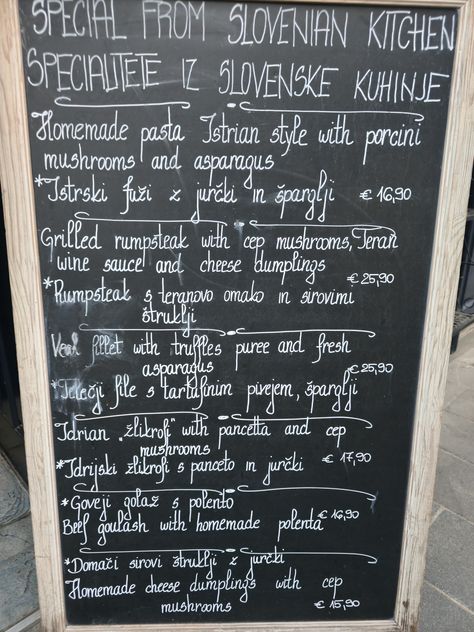 SPECIAL FROM SLOVENIAN KITCHEN
SPECIALITETE IZ SLOVENSKE KUHINJE
Homemade pasta Istrian style with porcini
mushrooms and asparagus
*Istrski fuži z jurčki in šparglji € 16,90
Grilled rumpsteak with cep mushrooms, Teran
wine sauce and cheese dumplings
€ 25,90
*Rumpsteak s teranovo omako in sirovimi
štruklji
Veal fillet with truffles puree and fresh
asparagus € 25,90
*Telečji file s tartufinim pirejem, šparglji
Idrian „žlikrofi" with pancetta and cep
mushrooms
*Idrijski žlikrofi s panceto in jurčki € 17,90
*Goveji golaž s polento
Beef goulash with homemade polenta € 16,90
*Domači sirovi štruklji z jurčki
Homemade cheese dumplings with cep
mushrooms € 15,90